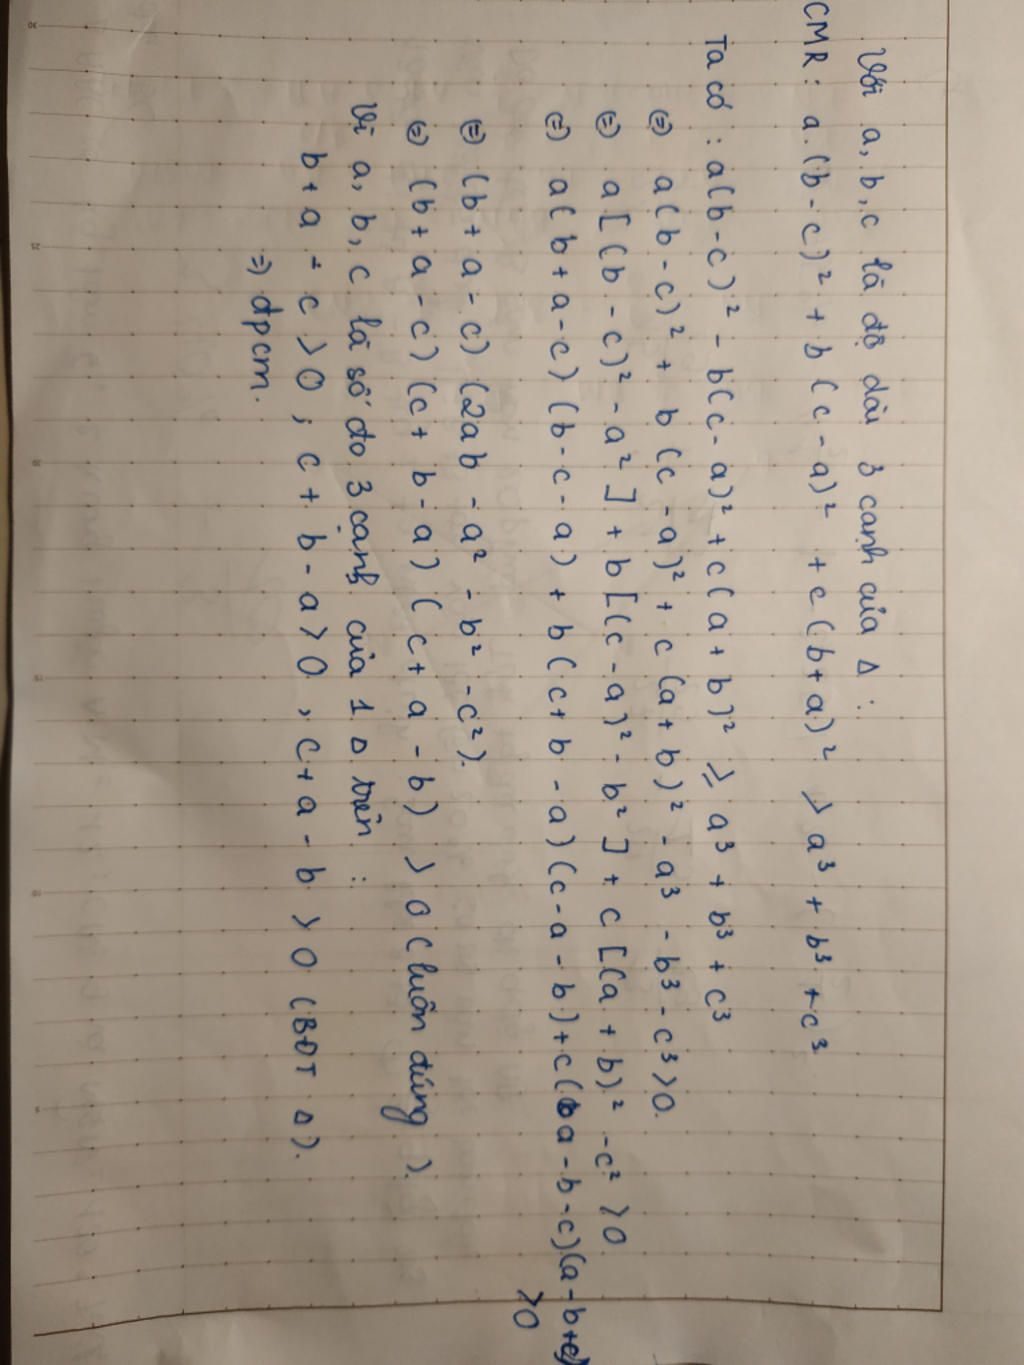 Với a, b, c là độ dài 3 cạnh của Δ :
CMR : a.(b - c)² + b (c - a)² + c (b+a)² > a³ + b³ + c³
Ta có : a(b-c)² - b(c-a)² + c(a+b)² ≥ a³ + b³ + c³
(=) a(b-c)² + b(c-a)² + c(a+b)² - a³ - b³ - c³ > 0.
(=) a[(b-c)² - a²] + b[(c-a)² - b²] + c[(a+b)² - c² > 0.
(=) a(b+a-c)(b-c-a) + b(c+b-a)(c-a-b) + c(a-b-c)(a-b+c) > 0
(=) (b+a-c)(2ab - a² - b² - c²).
(=) (b+a-c)(c+b-a)(c+a-b) > 0 (luôn đúng).
Vì a, b, c là số đo 3 cạnh của 1 Δ nên :
b+a-c > 0 ; c+b-a > 0 , c+a-b > 0 (BĐT Δ).
=) đpcm.